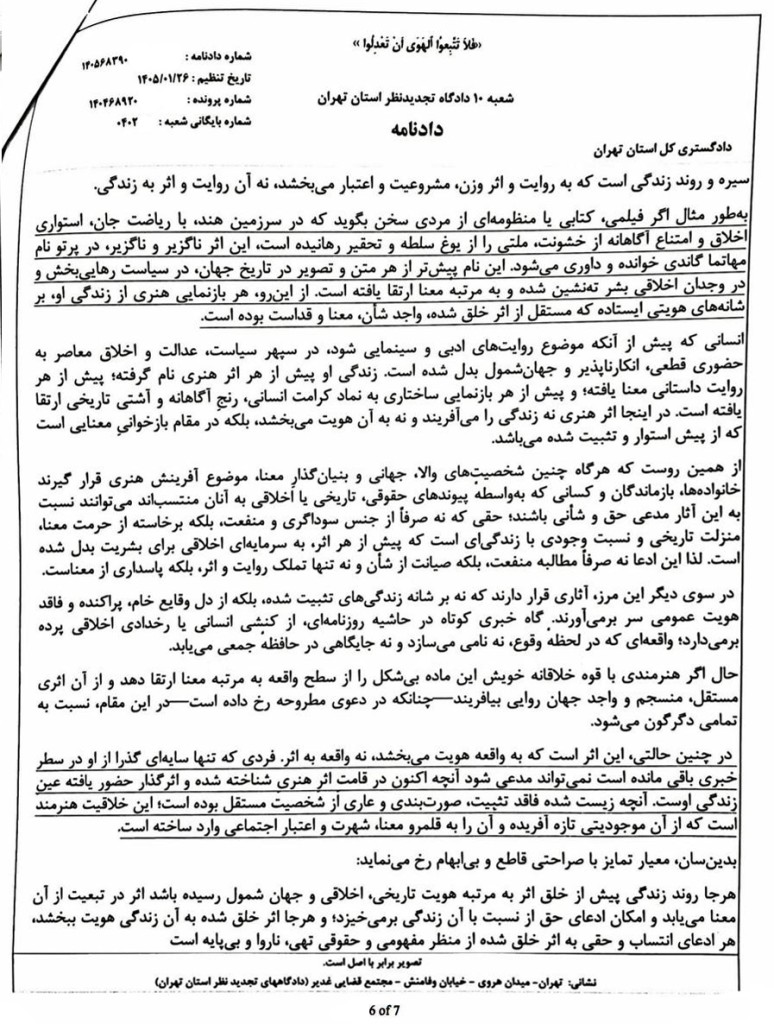 «فَلاَ تَتَّبِعُوا الْهَوَى أَنْ تَعْدِلُوا »
شماره دادنامه : ۱۴۰۵۶۸۳۹۰
تاریخ تنظیم : ۱۴۰۵/۰۱/۲۶
شماره پرونده : ۱۴۰۴۶۸۹۲۰
شماره بایگانی شعبه : ۰۴۰۲
شعبه ۱۰ دادگاه تجدیدنظر استان تهران
دادنامه
دادگستری کل استان تهران
سیره و روند زندگی است که به روایت و اثر وزن، مشروعیت و اعتبار می‌بخشد، نه آن روایت و اثر به زندگی.
به‌طور مثال اگر فیلمی، کتابی یا منظومه‌ای از مردی سخن بگوید که در سرزمین هند، با ریاضت جان، استواری
اخلاق و امتناع آگاهانه از خشونت، ملتی را از یوغ سلطه و تحقیر رهانیده است، این اثر ناگزیر و ناگزیر، در پرتو نام
مهاتما گاندی خوانده و داوری می‌شود. این نام پیش‌تر از هر متن و تصویر در تاریخ جهان، در سیاست رهایی‌بخش و
در وجدان اخلاقی بشر ته‌نشین شده و به مرتبه معنا ارتقا یافته است. از این‌رو، هر بازنمایی هنری از زندگی او، بر
شانه‌های هویتی ایستاده که مستقل از اثر خلق شده، واجد شأن، معنا و قداست بوده است.
انسانی که پیش از آنکه موضوع روایت‌های ادبی و سینمایی شود، در سپهر سیاست، عدالت و اخلاق معاصر به
حضوری قطعی، انکارناپذیر و جهان‌شمول بدل شده است. زندگی او پیش از هر اثر هنری نام گرفته؛ پیش از هر
روایت داستانی معنا یافته؛ و پیش از هر بازنمایی ساختاری به نماد کرامت انسانی، رنجِ آگاهانه و آشتی تاریخی ارتقا
یافته است. در اینجا اثر هنری نه زندگی را می‌آفریند و نه به آن هویت می‌بخشد، بلکه در مقام بازخوانیِ معنایی است
که از پیش استوار و تثبیت شده می‌باشد.
از همین روست که هرگاه چنین شخصیت‌های والا، جهانی و بنیان‌گذارِ معنا، موضوع آفرینش هنری قرار گیرند
خانواده‌ها، بازماندگان و کسانی که به‌واسطه پیوندهای حقوقی، تاریخی یا اخلاقی به آنان منتسب‌اند می‌توانند نسبت
به این آثار مدعی حق و شأنی باشند؛ حقی که نه صرفاً از جنس سوداگری و منفعت، بلکه برخاسته از حرمت معنا،
منزلت تاریخی و نسبت وجودی با زندگی‌ای است که پیش از هر اثر، به سرمایه‌ای اخلاقی برای بشریت بدل شده
است. لذا این ادعا نه صرفاً مطالبه منفعت، بلکه صیانت از شأن و نه تنها تملک روایت و اثر، بلکه پاسداری از معناست.
در سوی دیگر این مرز، آثاری قرار دارند که نه بر شانه زندگی‌های تثبیت شده، بلکه از دل وقایع خام، پراکنده و فاقد
هویت عمومی سر برمی‌آورند. گاه خبری کوتاه در حاشیه روزنامه‌ای، از کنشی انسانی یا رخدادی اخلاقی پرده
برمی‌دارد؛ واقعه‌ای که در لحظهٔ وقوع، نه نامی می‌سازد و نه جایگاهی در حافظهٔ جمعی می‌یابد.
حال اگر هنرمندی با قوه خلاقانه خویش این ماده بی‌شکل را از سطح واقعه به مرتبه معنا ارتقا دهد و از آن اثری
مستقل، منسجم و واجد جهان روایی بیافریند—چنانکه در دعوی مطروحه رخ داده است—در این مقام، نسبت به
تمامی دگرگون می‌شود.
در چنین حالتی، این اثر است که به واقعه هویت می‌بخشد، نه واقعه به اثر. فردی که تنها سایه‌ای گذرا از او در سطر
خبری باقی مانده است نمی‌تواند مدعی شود آنچه اکنون در قامت اثر هنری شناخته شده و اثرگذار حضور یافته عین
زندگی اوست. آنچه زیست شده فاقد تثبیت، صورت‌بندی و عاری از شخصیت مستقل بوده است؛ این خلاقیت هنرمند
است که از آن موجودیتی تازه آفریده و آن را به قلمرو معنا، شهرت و اعتبار اجتماعی وارد ساخته است.
بدین‌سان، معیار تمایز با صراحتی قاطع و بی‌ابهام رخ می‌نماید:
هرجا روند زندگی پیش از خلق اثر به مرتبه هویت تاریخی، اخلاقی و جهان شمول رسیده باشد اثر در تبعیت از آن
معنا می‌یابد و امکان ادعای حق از نسبت با آن زندگی برمی‌خیزد؛ و هرجا اثر خلق شده به آن زندگی هویت ببخشد،
هر ادعای انتساب و حقی به اثر خلق شده از منظر مفهومی و حقوقی تهی، ناروا و بی‌پایه است
تصویر برابر با اصل است.
نشانی: تهران- میدان هروی - خیابان وفامنش - مجتمع قضایی غدیر (دادگاههای تجدید نظر استان تهران)
6 of 7